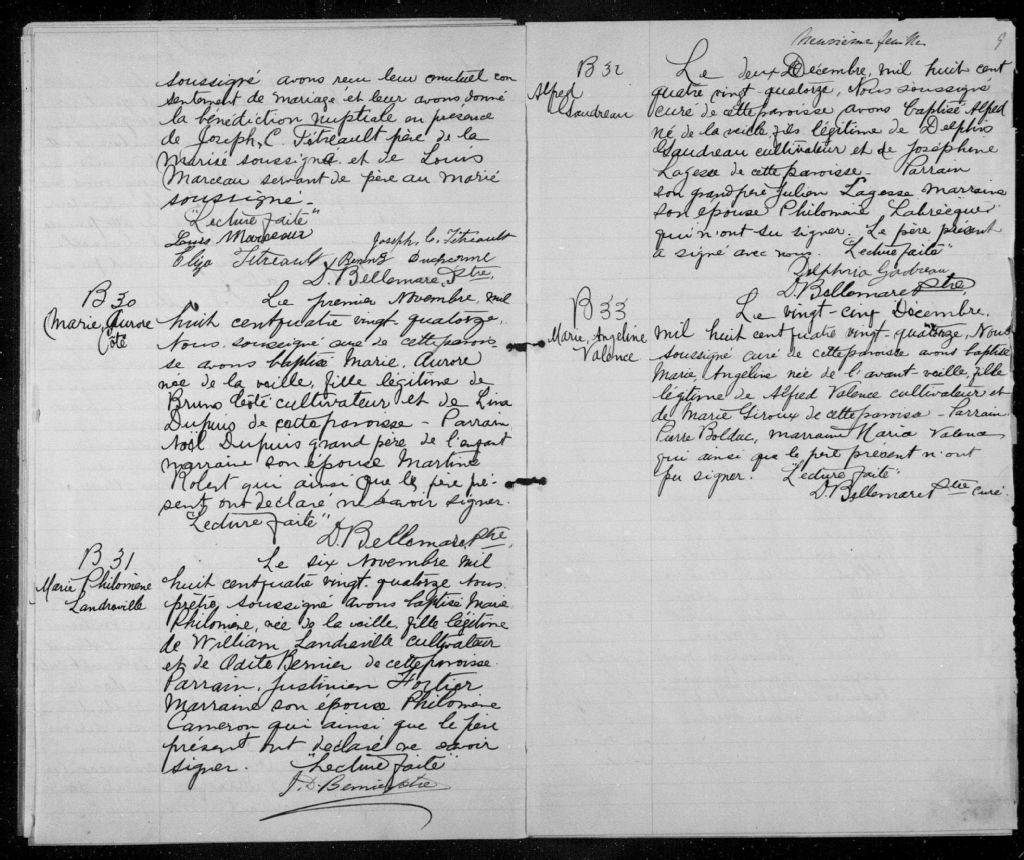 soussigné avons reçu leur mutuel con
sentement de mariage et leur avons donné
la bénédiction nuptiale en présence
de Joseph, C. Titreault père de la
Mariée soussigné et de Louis
Marceau servant de père au marié
soussigné -
"Lecture faite"
Louis Marceau Joseph, C. Titreault
Eliza Titreault
D. Bellemare, Ptre,
B 30
Marie, Aurore
Côté
Le premier Novembre, mil
huit cent quatre vingt quatorze,
Nous soussigné curé de cette parois-
se avons baptisé Marie, Aurore
née de la veille, fille légitime de
Bruno Côté cultivateur et de Lina
Dupuis de cette paroisse - Parrain
Noël Dupuis grand père de l'enfant
marraine son épouse Martine
Robert qui ainsi que le père pré-
sent ont déclaré ne savoir signer.
"Lecture faite"
D. Bellemare, Ptre,
B 31
Marie Philomène
Landreville
Le six Novembre mil
huit cent quatre vingt, quatorze Nous
prêtre, soussigné avons baptisé Marie
Philomène, née de la veille, fille légitime
de William, Landreville cultivateur
et de Odite Bernier de cette paroisse.
Parrain, Justinien Fortier
Marraine son épouse Philomène
Cameron qui ainsi que le père
présent ont déclaré ne savoir
signer. "Lecture faite"
J. D. Bernier ptre
9
B 32
Alfred
Gaudreau
Le deux Décembre, mil huit cent
quatre vingt-quatorze, Nous soussigné
curé de cette paroisse avons baptisé Alfred
né, de la veille, fils légitime de Delphis
Gaudreau cultivateur et de Joséphine
Lagesse de cette paroisse - Parrain
son grand père Julien Lagesse Marraine
son épouse Philomène Labrècque
qui n'ont su signer. Le père présent
a signé avec nous. "Lecture faite"
D. Bellemare Ptre
B 33
Marie, Angéline
Valence
Le vingt-cinq Décembre,
mil huit cent quatre vingt-quatorze, Nous
soussigné curé de cette paroisse avons baptisé
Marie, Angéline née de l'avant veille, fille
légitime de Alfred Valence cultivateur et
de Marie Giroux de cette paroisse - Parrain
Pierre Bolduc, marraine Maria Valence
qui ainsi que le père présent n'ont
pu signer. "Lecture faite"
D. Bellemare Ptre curé.